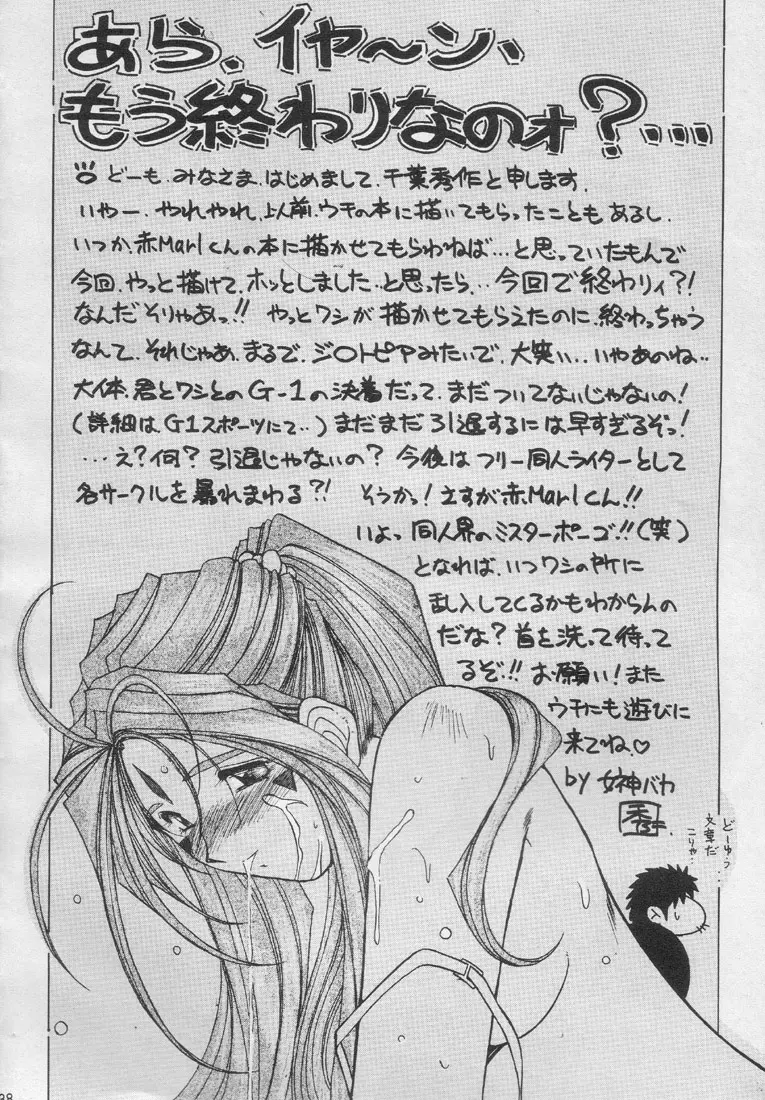 あら、イヤ〜ン、
もう終わりなのォ?…
どーも、みなさま、はじめまして、千葉秀作と申します。
いやー、やれやれ、以前、ウチの本に描いてもらったこともあるし、
いつか、赤Marlくんの本に描かせてもらわねば…と思っていたもんで
今回、やっと描けて、ホッとしました…と思ったら、今回で終わりィ?!
なんだそりゃあっ!! やっとワシが描かせてもらえたのに、終わっちゃう
なんて、それじゃあ、まるで、ジ○トピアみたいで、大笑い…いやあのね…
大体、君とワシとのG-1の決着だって、まだついてないじゃないの!
(詳細はG1スポーツにて…)まだまだ引退するには早すぎるぞっ!
…え?何?引退じゃないの? 今後はフリー同人ライターとして
各サークルを暴れまわる?! そうかっ!さすが赤Marlくん!!
いよっ同人界のミスターポーゴ!!(笑)
となれば、いつワシの所に
乱入してくるかもわからんの
だな?首を洗って待って
るぞ!!お願い!また
ウチにも遊びに
来てね♡
by 女神バカ
秀
どーゆーっ
文章だ
こりゃ…
38